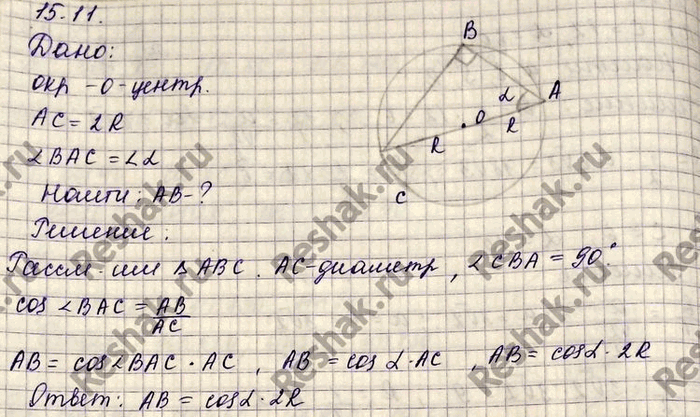 15.11.
Дано:
окр - О - центр.
AC = 2R
∠BAC = ∠α
Найти: AB - ?
Решение:
Рассм-им △ABC. AC-диаметр, ∠CBA = 90°
cos ∠BAC = AB/AC
AB = cos∠BAC · AC, AB = cos α · AC, AB = cosα · 2R
Ответ: AB = cosα · 2R
B
α
A
O
R
R
C
Reshak.ru
Reshak.ru
Reshak.ru
Reshak.ru
Reshak.ru
Reshak.ru
Reshak.ru
Reshak.ru
Reshak.ru